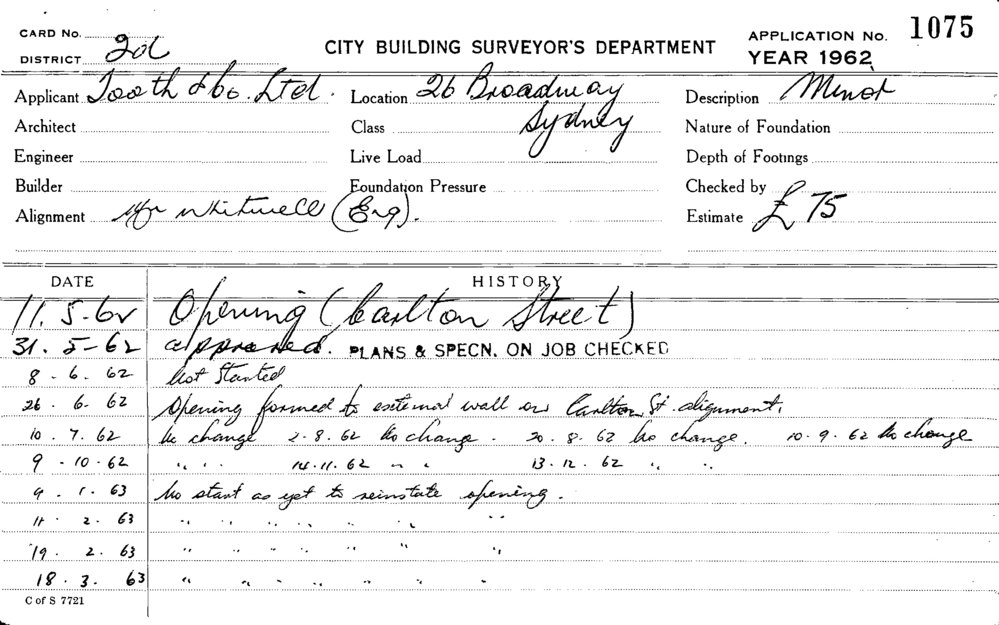 CARD No.
DISTRICT 2d
CITY BUILDING SURVEYOR'S DEPARTMENT
APPLICATION No. 1075
YEAR 1962
Applicant Tooth & Co. Ltd. Location 26 Broadway Description Minor
Architect Class Sydney Nature of Foundation
Engineer Live Load Depth of Footings
Builder Foundation Pressure Checked by
Alignment Mr Whitwell (Eng). Estimate £75
DATE HISTORY
11. 5. 62 Opening (Carlton Street)
31. 5-62 approved. PLANS & SPECN. ON JOB CHECKED
8 - 6. 62 Not Started
26. 6. 62 Opening formed to external wall on Carlton St. alignment.
10. 7. 62 No change 2.8.62 No change. 20.8.62 No change. 10.9.62 No change
9 - 10. 62 " " 14.11.62 " " 13.12.62 " "
9. 1. 63 No start as yet to reinstate opening.
11. 2. 63 " " " " " " "
19. 2. 63 " " " " " " "
18. 3. 63 " " " " " " "
C of S 7721